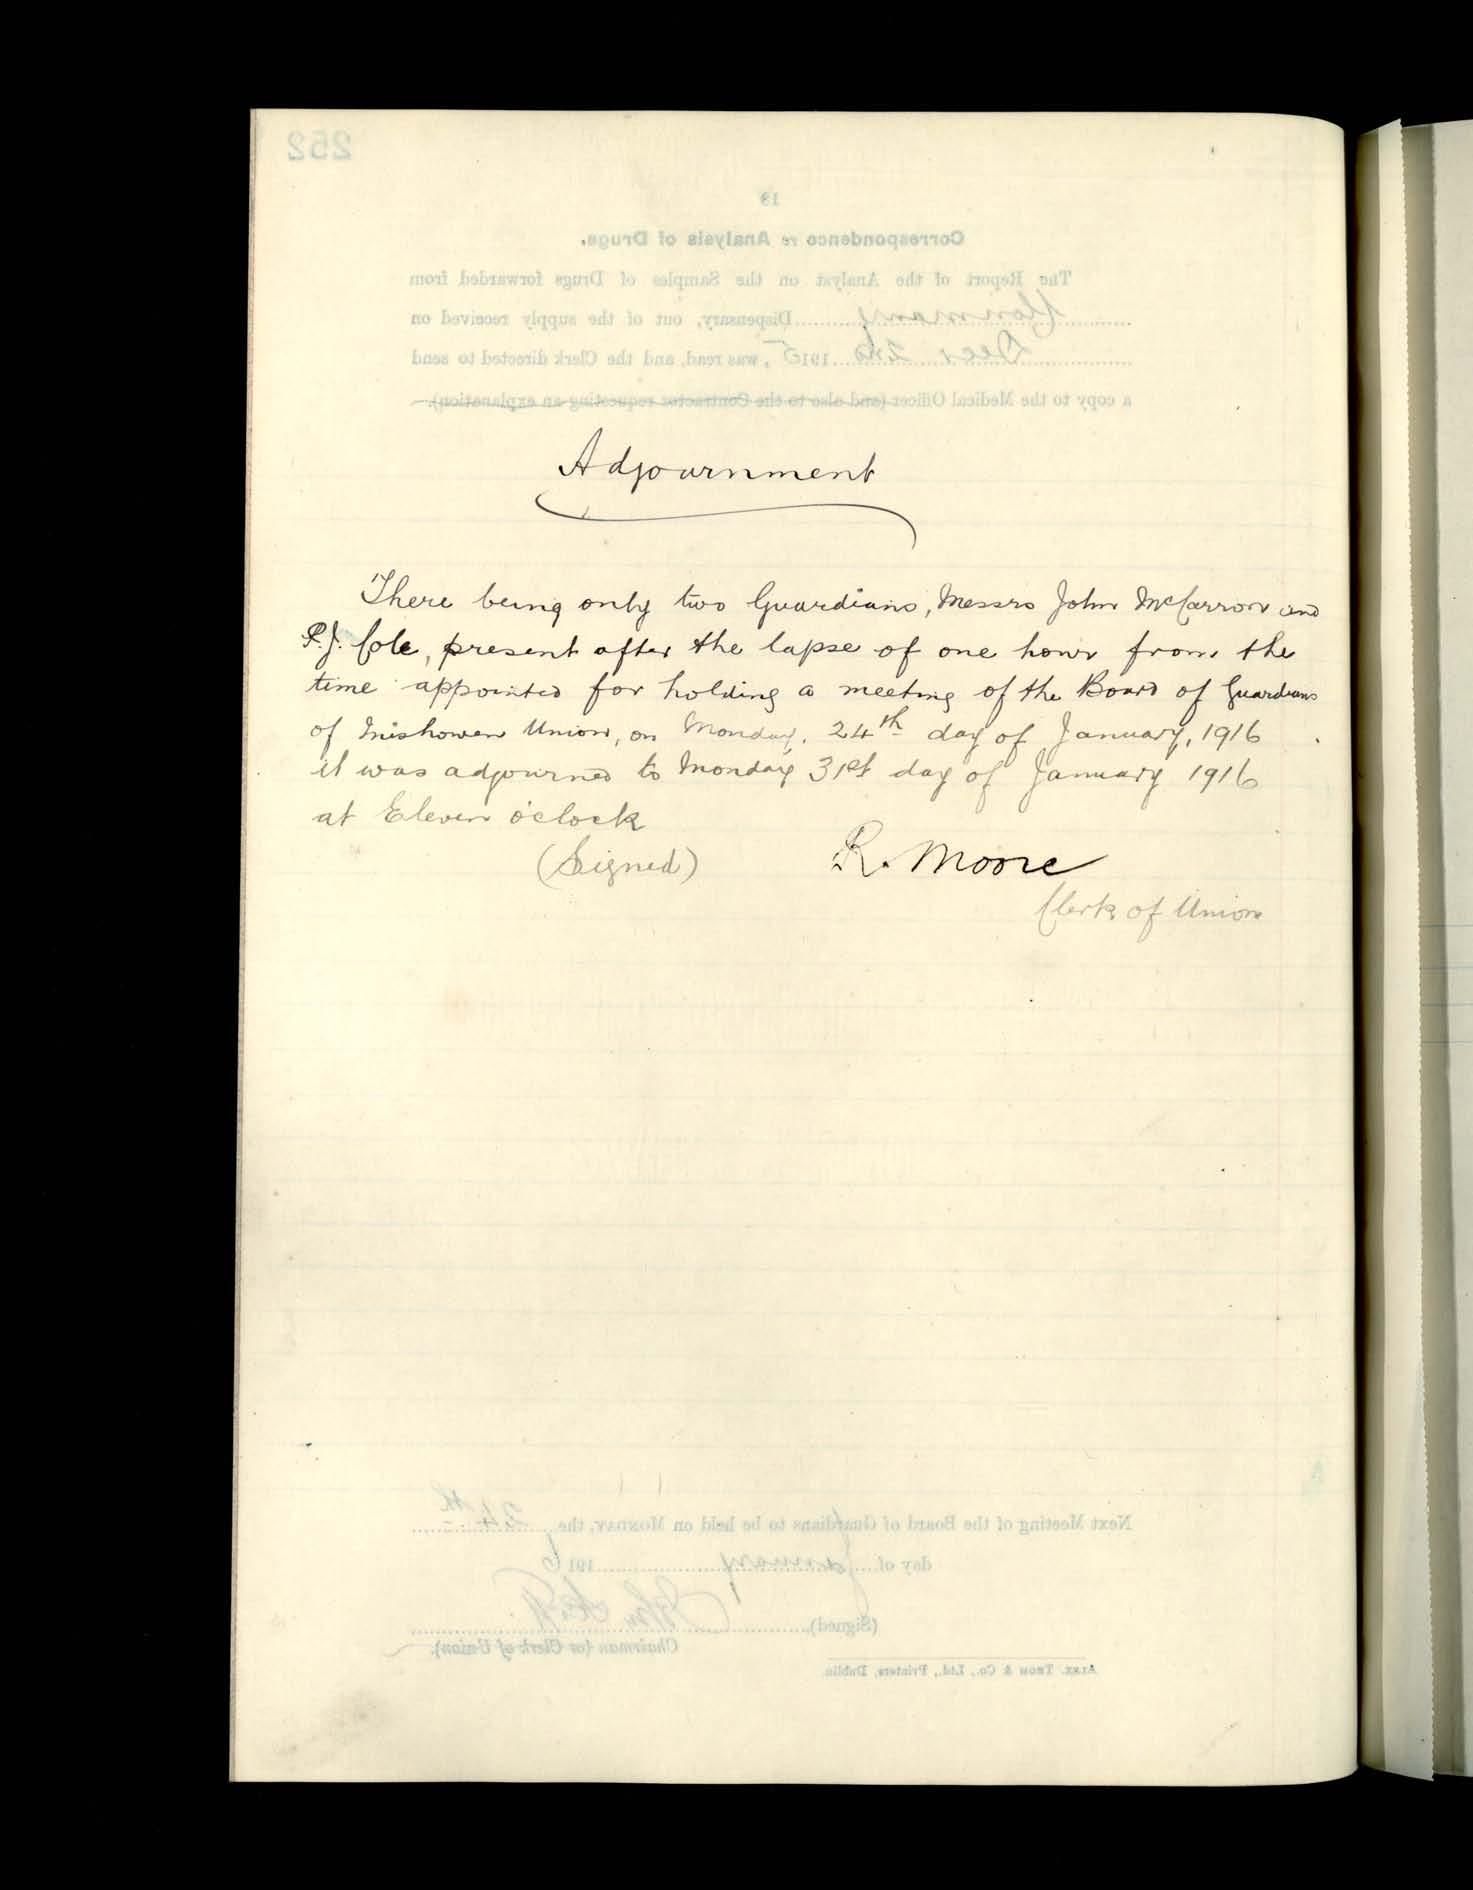 Adjournment
There being only two Guardians, Messrs John McCarron and
P.J. Cole, present after the lapse of one hour from the
time appointed for holding a meeting of the Board of Guardians
of Inishowen Union, on Monday, 24th day of January, 1916
it was adjourned to Monday 31st day of January 1916
at Eleven o'clock
(Signed) R. Moore
Clerk of Union